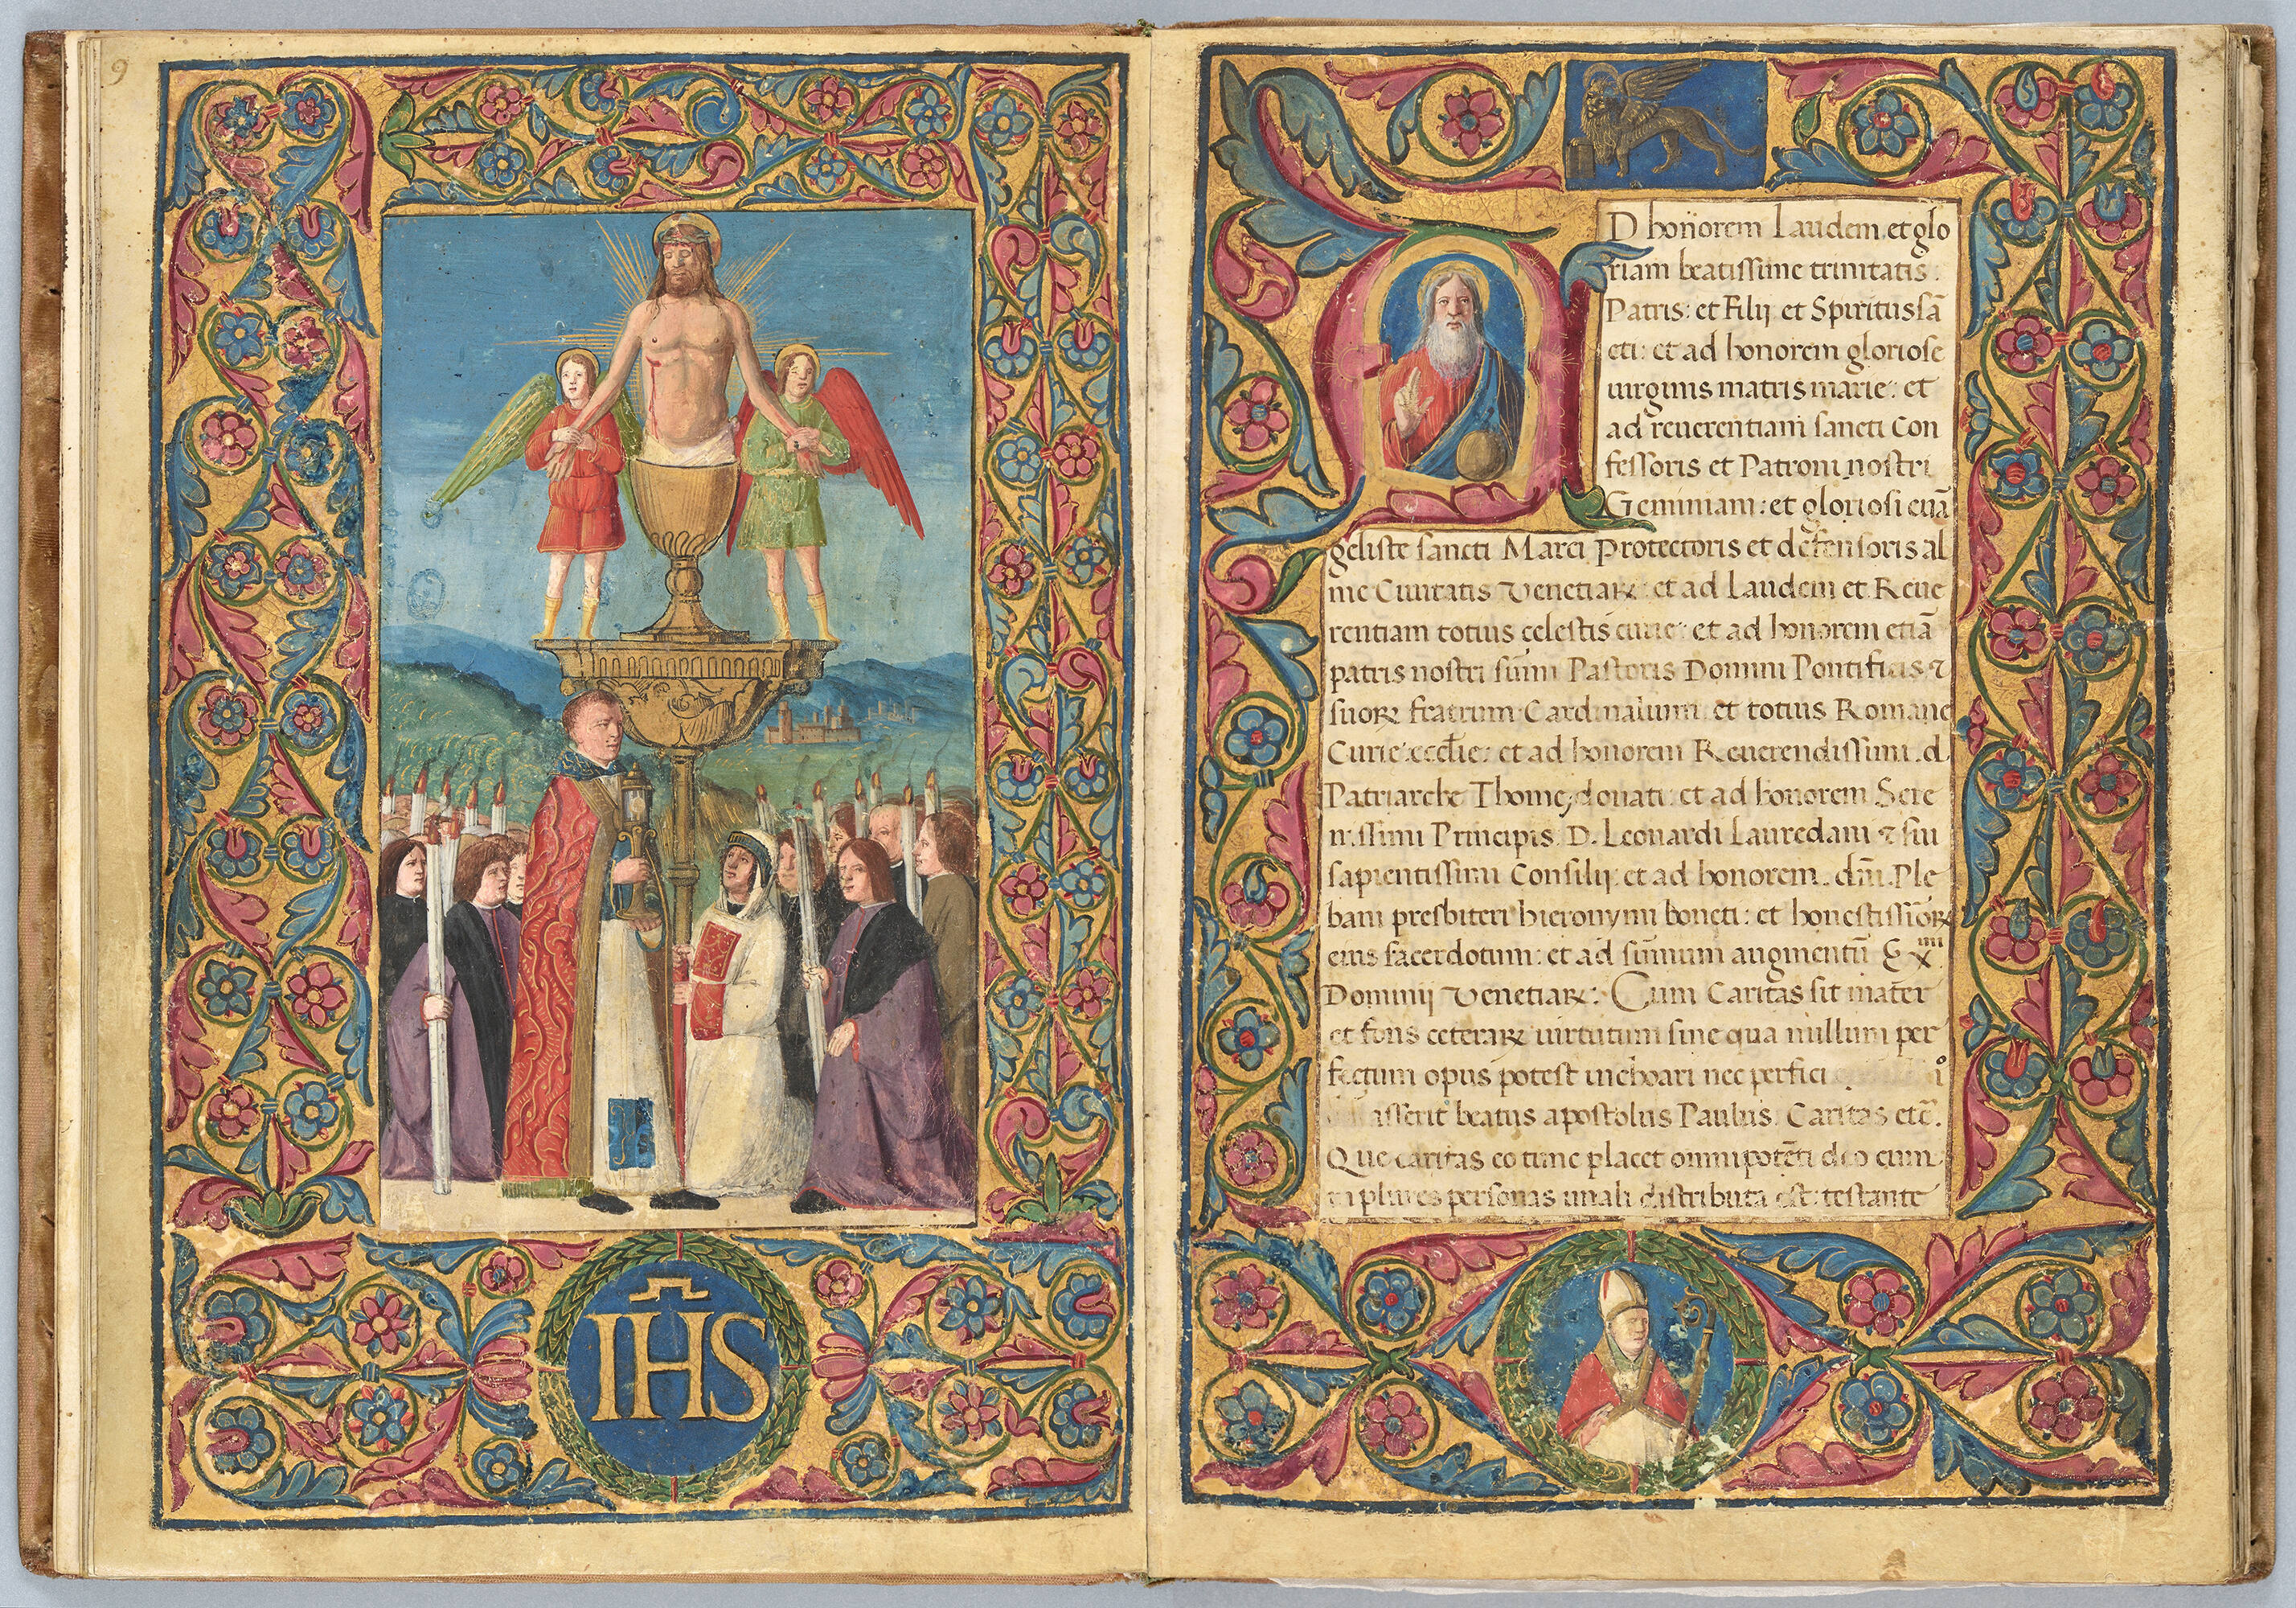 9
IHS
AD honorem Laudem et glo
riam beatissime trinitatis:
Patris: et Filij et Spiritus sā
cti: et ad honorem gloriose
uirginis matris marie: et
ad reuerentiam sancti Con
fessoris et Patroni nostri
Geminiani: et gloriosi euā
geliste sancti Marci Protectoris et defensoris al
me Ciuitatis Venetiaꝝ: et ad Laudem et Reue
rentiam totius celestis curie: et ad honorem etiā
patris nostri sūmi Pastoris Domini Pontificis ⁊
suoꝝ fratrum Cardinalium et totius Romane
Curie eccƚie: et ad honorem Reuerendissimi .d.
Patriarche Thome donati: et ad honorem Sere
nissimi Principis D. Leonardi Lauredani ⁊ sui
sapientissimi Consilij: et ad honorem dn̄i Ple
bani presbiteri hieronymi boneti: et honestissīoꝝ
eius sacerdotum: et ad sūmum augmentū
Dominij Venetiaꝝ: Cum Caritas sit mater
et fons ceteraꝝ uirtutum sine qua nullum per
fectum opus potest inchoari nec perfici
asserit beatus apostolus Paulus. Caritas etc̄.
Que caritas eo tunc placet omnipotēti deo cum
in plures personas uniali distributa est: testante